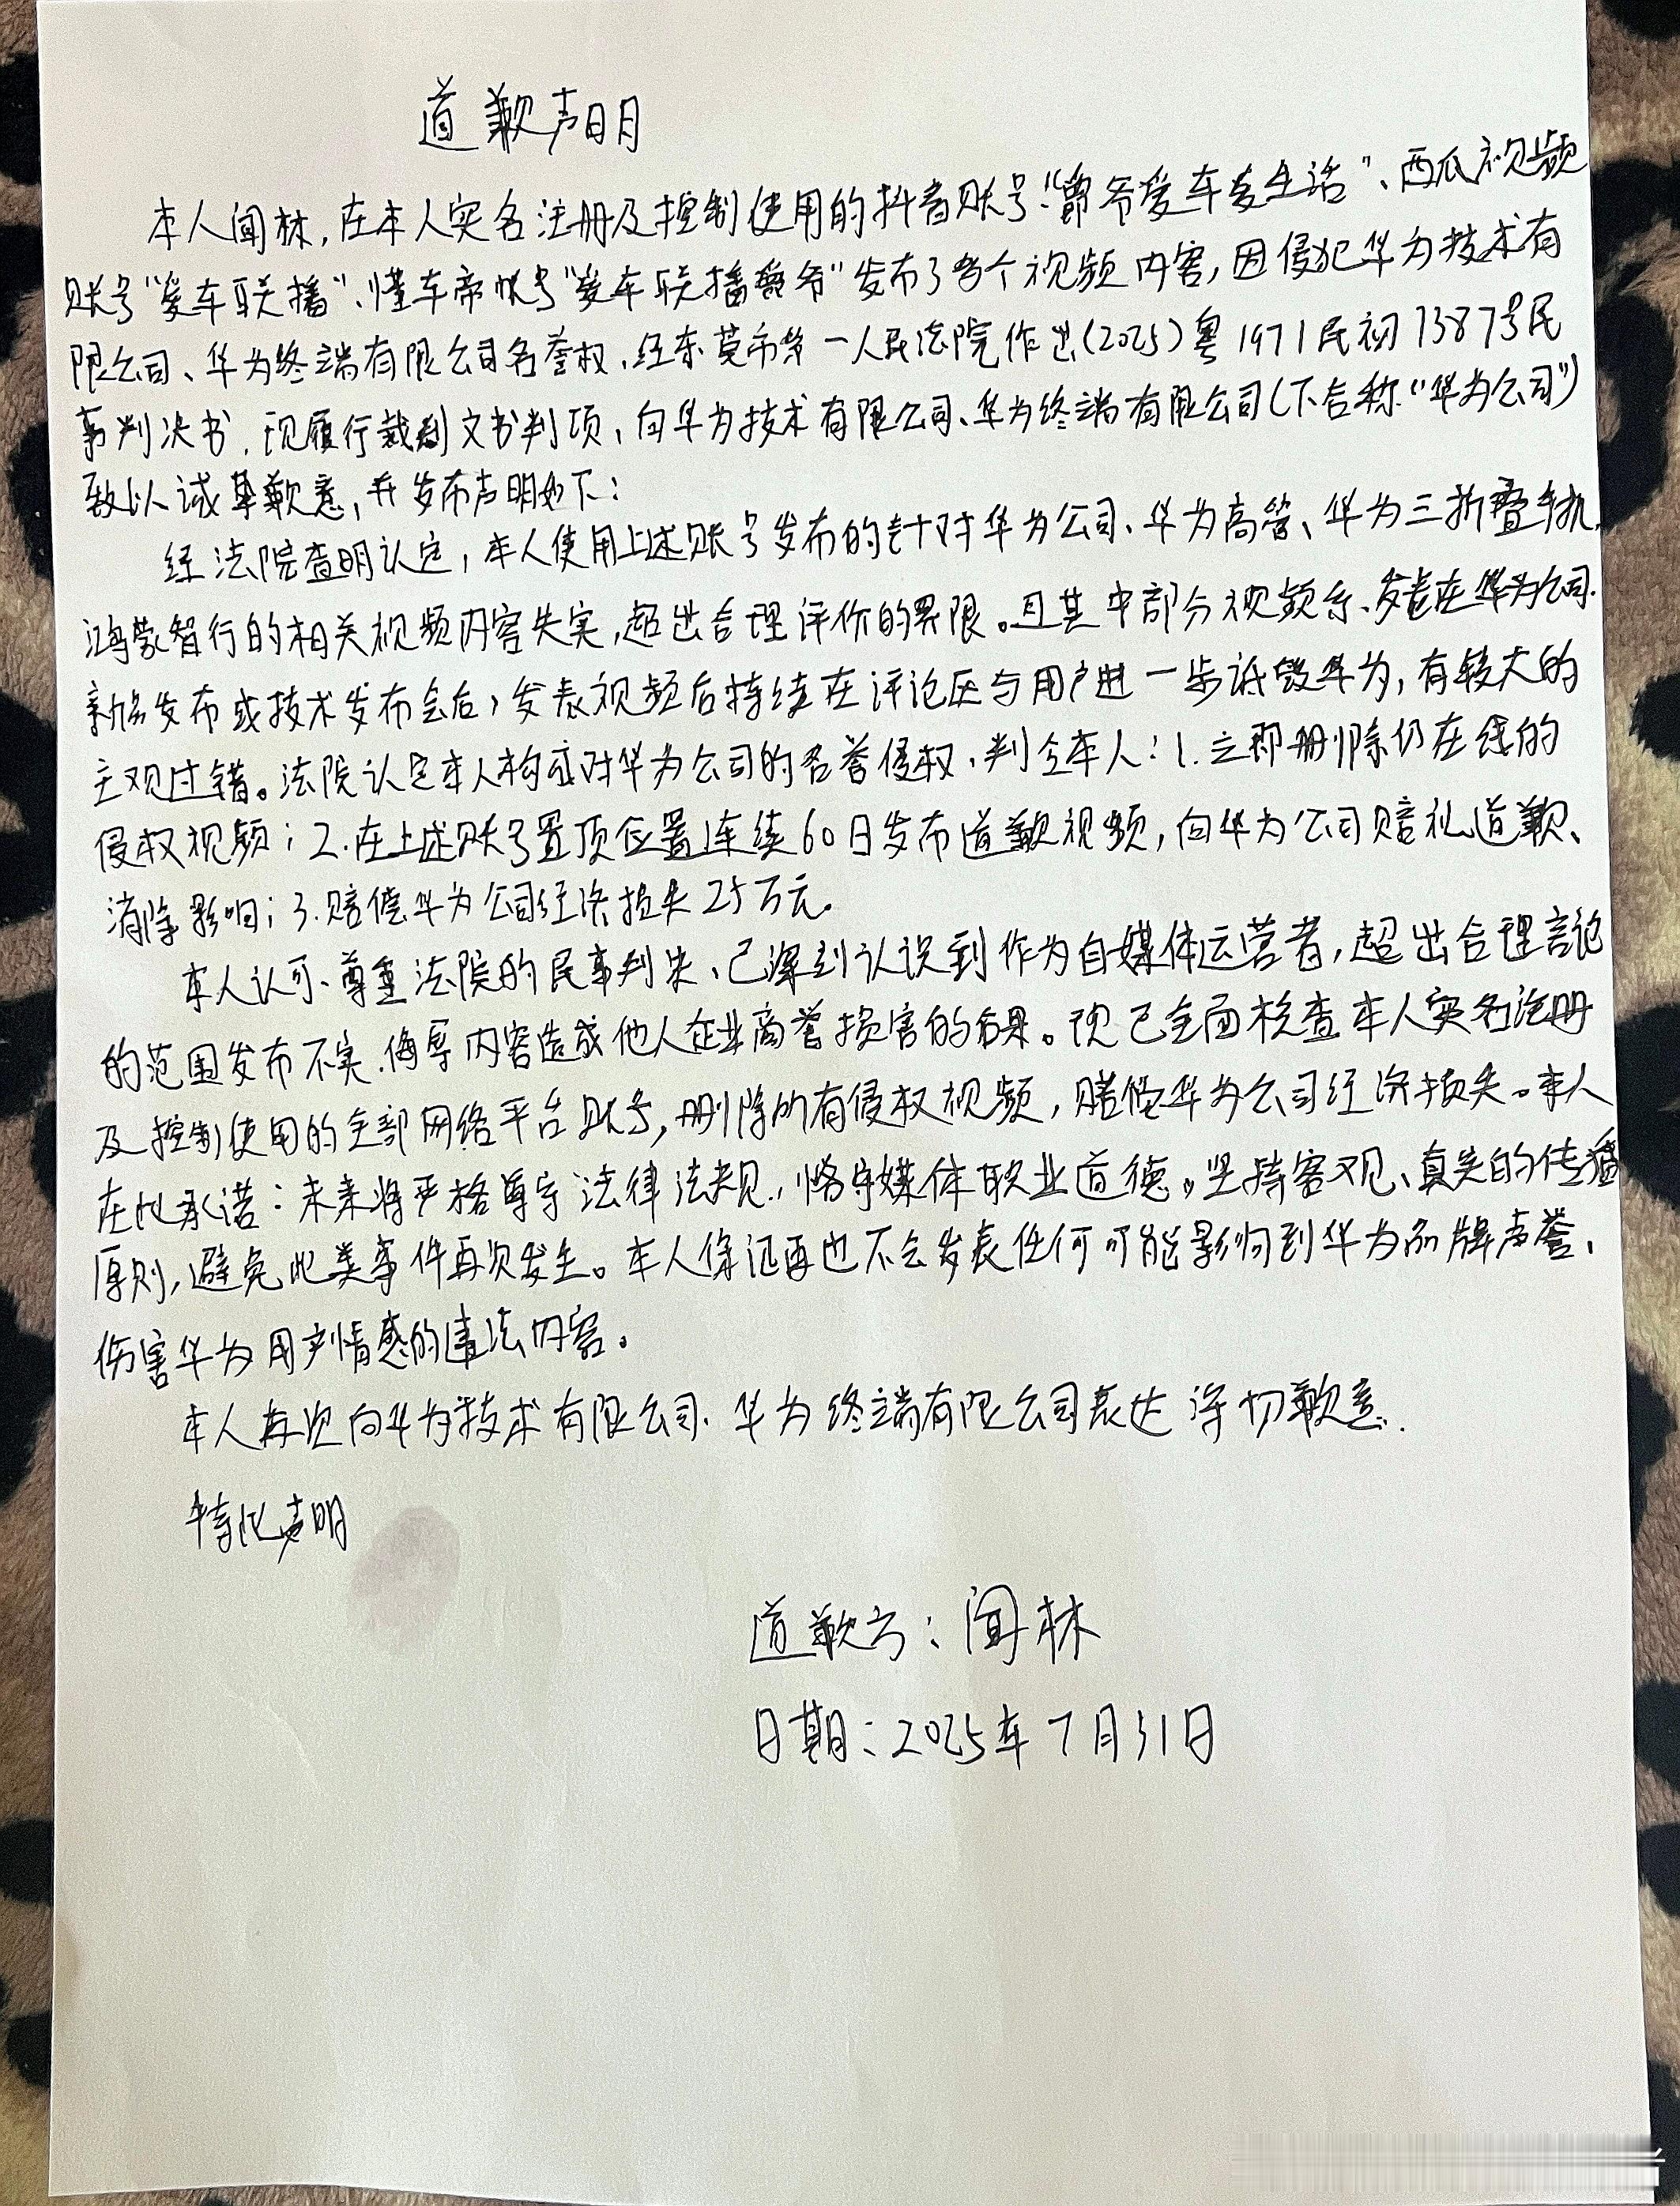 道歉声明
本人闻林,在本人实名注册及控制使用的抖音账号“爵爷爱车爱生活”、西瓜视频
账号“爱车联播”、懂车帝帐号“爱车联播爵爷”发布了多个视频内容,因侵犯华为技术有
限公司、华为终端有限公司名誉权,经东莞市第一人民法院作出(2025)粤1971民初13873号民
事判决书,现履行裁判文书判项,向华为技术有限公司、华为终端有限公司(下合称“华为公司”)
致以诚挚歉意,并发布声明如下:
经法院查明认定,本人使用上述账号发布的针对华为公司、华为高管、华为三折叠手机、
鸿蒙智行的相关视频内容失实,超出合理评价的界限。且其中部分视频系、发表在华为公司
新品发布或技术发布会后,发表视频后持续在评论区与用户进一步诋毁华为,有较大的
主观过错。法院认定本人构成对华为公司的名誉侵权,判令本人:1.立即删除仍在线的
侵权视频;2.在上述账号置顶位置连续60日发布道歉视频,向华为公司赔礼道歉、
消除影响;3.赔偿华为公司经济损失25万元。
本人认可、尊重法院的民事判决、已深刻认识到作为自媒体运营者,超出合理言论
的范围发布不实、侮辱内容造成他人企业商誉损害的后果。现已全面核查本人实名注册
及控制使用的全部网络平台账号,删除所有侵权视频,赔偿华为公司经济损失。本人
在此承诺:未来将严格遵守法律法规,恪守媒体职业道德。坚持客观、真实的传播
原则,避免此类事件再次发生。本人保证再也不会发表任何可能影响到华为品牌声誉、
伤害华为用户情感的违法内容。
本人再次向华为技术有限公司、华为终端有限公司表达深切歉意.
特此声明
道歉方:闻林
日期:2025年7月31日